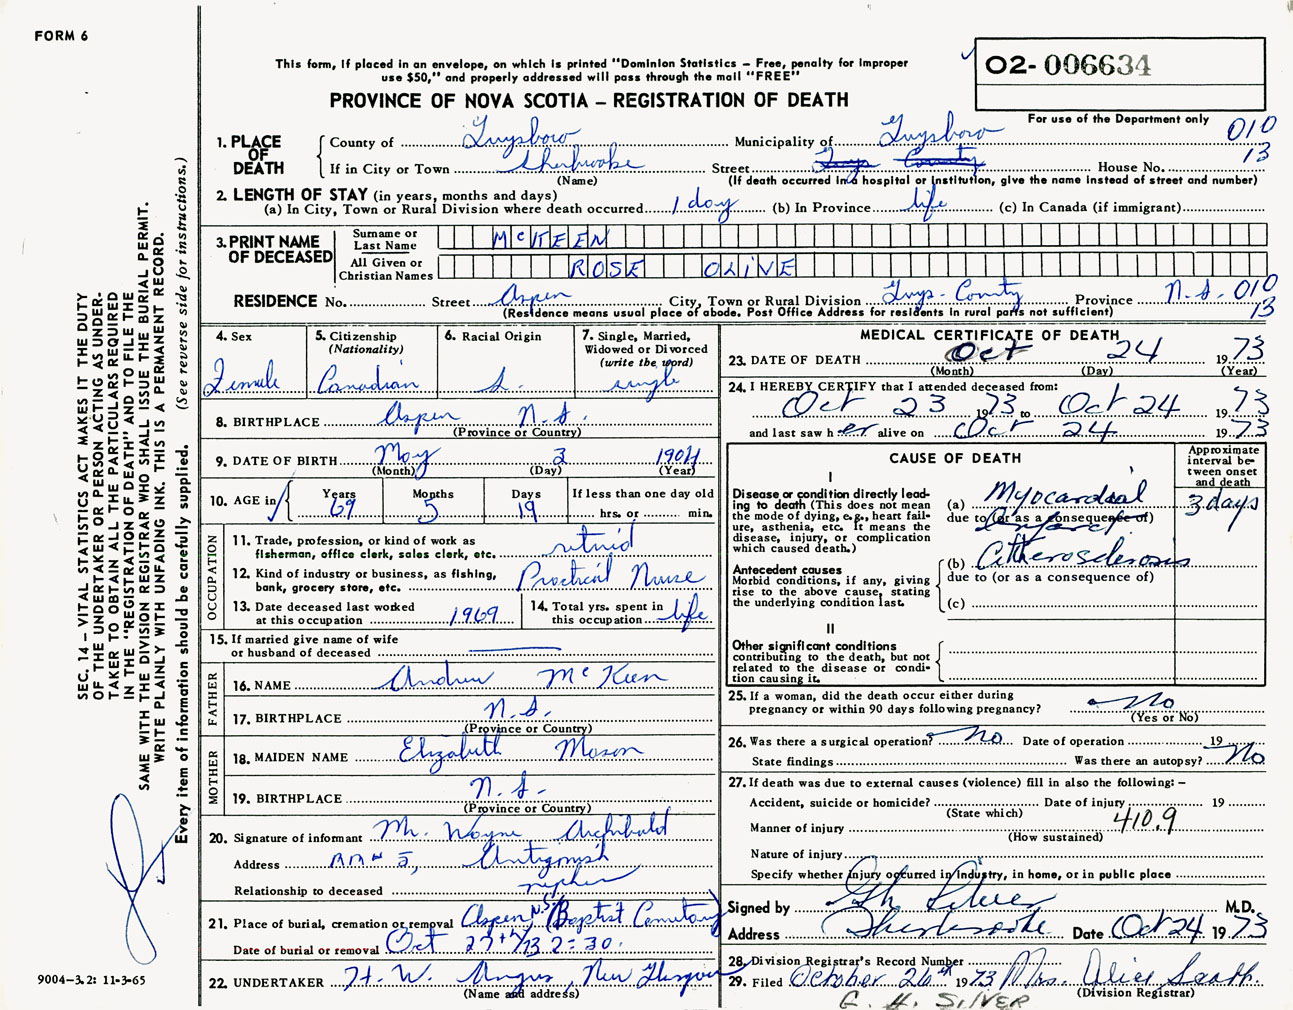 FORM 6
This form, if placed in an envelope, on which is printed "Dominion Statistics – Free, penalty for improper
use $50," and properly addressed will pass through the mail "FREE"
O2- 006634
PROVINCE OF NOVA SCOTIA – REGISTRATION OF DEATH
For use of the Department only
010
13
1. PLACE OF DEATH
County of Guysboro Municipality of Guysboro
If in City or Town Sherbrooke Street Guys County House No.
(Name) (If death occurred in a hospital or institution, give the name instead of street and number)
2. LENGTH OF STAY (in years, months and days)
(a) In City, Town or Rural Division where death occurred 1 day (b) In Province life (c) In Canada (if immigrant)
3. PRINT NAME OF DECEASED
Surname or Last Name McKEEN
All Given or Christian Names ROSE OLIVE
RESIDENCE No. Street Aspen City, Town or Rural Division Guys- County Province N.S. 010
13
(Residence means usual place of abode. Post Office Address for residents in rural parts not sufficient)
4. Sex Female
5. Citizenship (Nationality) Canadian
6. Racial Origin S.
7. Single, Married, Widowed or Divorced (write the word) single
8. BIRTHPLACE Aspen N.S.
(Province or Country)
9. DATE OF BIRTH May 3 1904
(Month) (Day) (Year)
10. AGE in Years 69 Months 5 Days 19 If less than one day old hrs. or min.
OCCUPATION
11. Trade, profession, or kind of work as
fisherman, office clerk, sales clerk, etc. retired
12. Kind of industry or business, as fishing,
bank, grocery store, etc. Practical Nurse
13. Date deceased last worked
at this occupation 1969
14. Total yrs. spent in
this occupation life
15. If married give name of wife
or husband of deceased
FATHER
16. NAME Andrew McKeen
17. BIRTHPLACE N.S.
(Province or Country)
MOTHER
18. MAIDEN NAME Elizabeth Mason
19. BIRTHPLACE N.S.
(Province or Country)
20. Signature of informant Mr. Wayne Archibald
Address RR # 5, Antigonish
Relationship to deceased nephew
21. Place of burial, cremation or removal Aspen N.S. Baptist Cemetary
Date of burial or removal Oct 27th/73 2=30.
22. UNDERTAKER H. W. Angus, New Glasgow
(Name and address)
MEDICAL CERTIFICATE OF DEATH
23. DATE OF DEATH Oct 24 1973
(Month) (Day) (Year)
24. I HEREBY CERTIFY that I attended deceased from:
Oct 23 1973 to Oct 24 1973
and last saw her alive on Oct 24 1973
CAUSE OF DEATH
Approximate interval between onset and death
I
Disease or condition directly leading to death (This does not
mean the mode of dying, e.g., heart failure, asthenia, etc. It means the
disease, injury, or complication
which caused death.)
(a) Myocardial
due to (or as a consequence of) Infarct
3 days
Antecedent causes
Morbid conditions, if any, giving
rise to the above cause, stating
the underlying condition last.
(b) Atherosclerosis
due to (or as a consequence of)
(c)
II
Other significant conditions
contributing to the death, but not
related to the disease or condition causing it.
25. If a woman, did the death occur either during
pregnancy or within 90 days following pregnancy? No
(Yes or No)
26. Was there a surgical operation? No Date of operation 19
State findings Was there an autopsy? No
27. If death was due to external causes (violence) fill in also the following: –
Accident, suicide or homicide? Date of injury 19
(State which)
Manner of injury 410.9
(How sustained)
Nature of injury
Specify whether injury occurred in industry, in home, or in public place
Signed by GH Silver M.D.
Address Sherbrooke Date Oct 24 1973
28. Division Registrar's Record Number
29. Filed October 26th 1973 Mrs. Alice
(Division Registrar)
G. H. SILVER
SEC. 14 – VITAL STATISTICS ACT MAKES IT THE DUTY
OF THE UNDERTAKER OR PERSON ACTING AS UNDER-
TAKER TO OBTAIN ALL THE PARTICULARS REQUIRED
IN THE "REGISTRATION OF DEATH" AND TO FILE THE
SAME WITH THE DIVISION REGISTRAR WHO SHALL ISSUE THE BURIAL PERMIT.
WRITE PLAINLY WITH UNFADING INK. THIS IS A PERMANENT RECORD.
Every item of information should be carefully supplied. (See reverse side for instructions.)
9004-3.2: 11-3-65